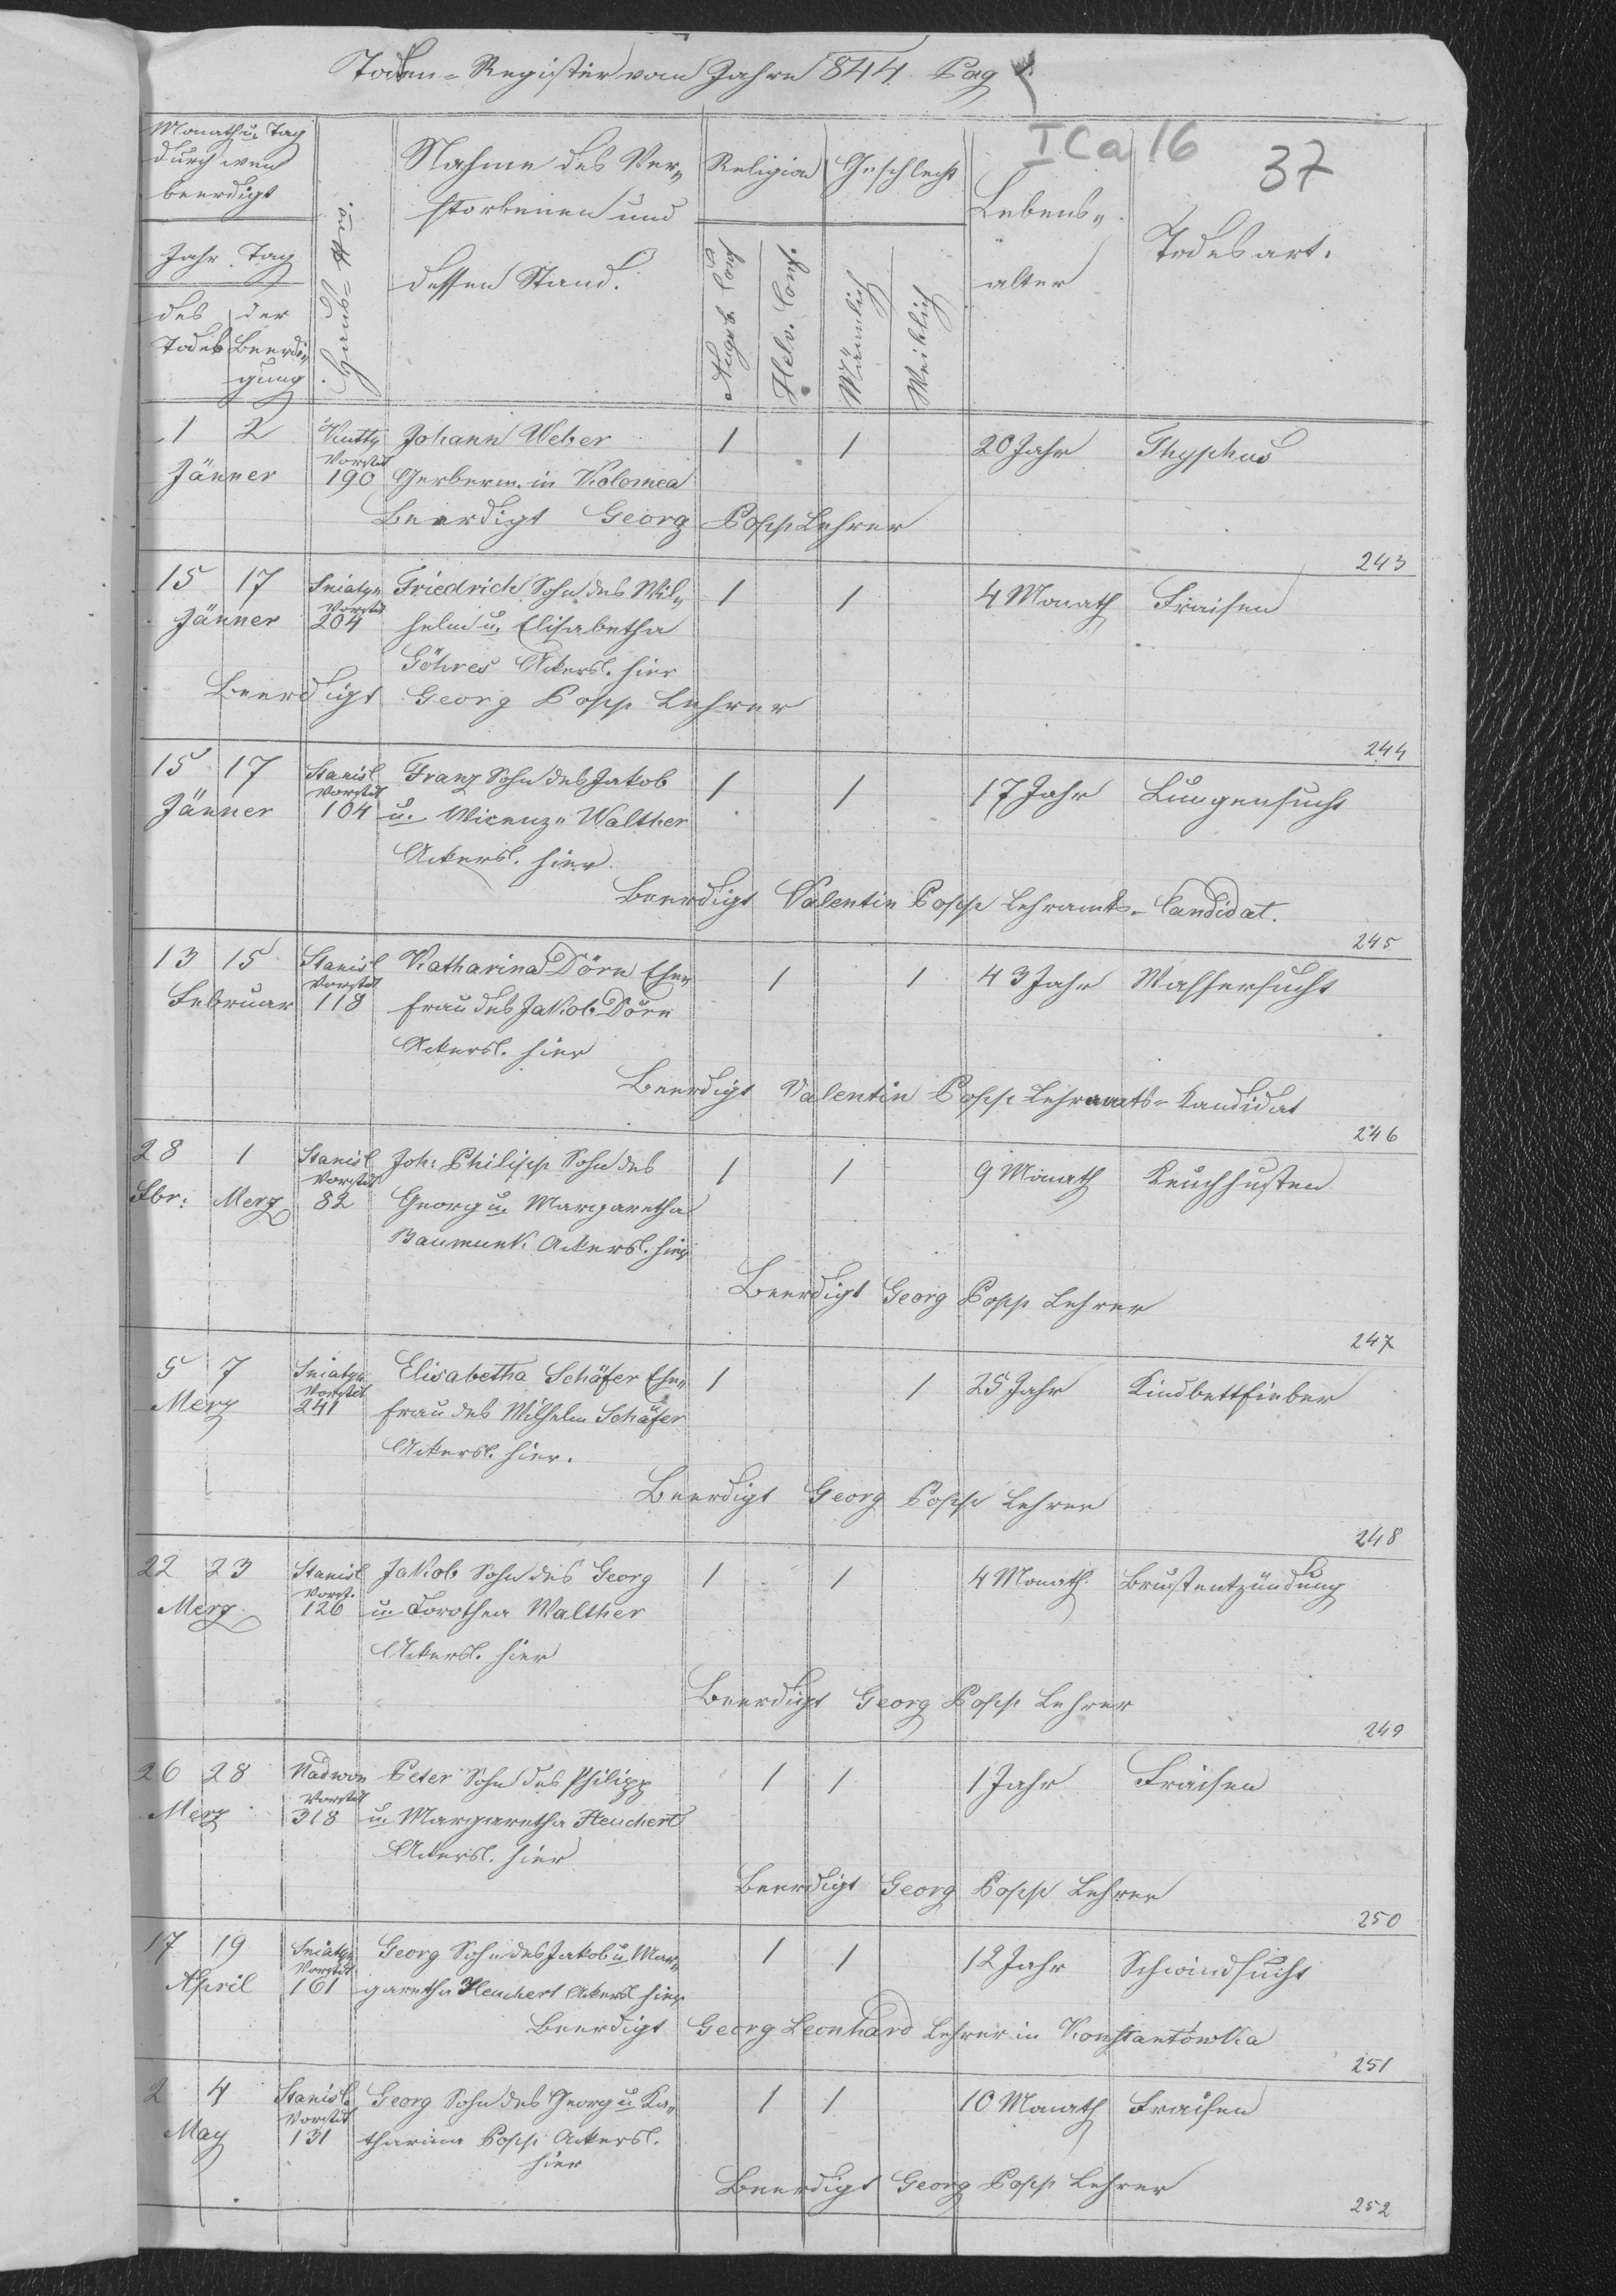 Todten=Register vom Jahre 844. Pag
I C a 16
37
Monath u. Tag
durch wen
beerdigt
Jahr Tag
des der
Todes Beerdi„
gung
Haus=Nro.
Nahme des Ver„
storbenen und
dessen Stand.
Religion
Augsb. Conf
Helv. Conf.
Geschlecht
Männlich
Weiblich
Lebens„
alter
Todesart.
1 2 Kutty Johann Weber 1 1 20 Jahr Thyphus
Vorstdt
Jänner 190 Gerberm. in Kolomea
Beerdigt Georg Popp Lehrer
243
15 17 Sniatyn Friedrich Sohn des Wil„ 1 1 4 Monath Fraisen
Vorstdt
Jänner 204 helm u. Elisabetha
Göhres Ackersl. hier
Beerdigt Georg Popp Lehrer
244
15 17 Stanisl Franz Sohn des Jakob 1 1 17 Jahr Lungensucht
Vorstdt
Jänner 104 u. Wicenz„ Walther
Ackersl. hier
Beerdigt Valentin Popp Lehramts=Candidat.
245
13 15 Stanisl Katharina Dörn Ehe„ 1 1 43 Jahr Wassersucht
Vorstdt
Februar 118 frau des Jakob Dörn
Ackersl. hier
Beerdigt Valentin Popp Lehramts=Kandidat
246
28 1 Stanisl Joh: Philipp Sohn des 1 1 9 Monath Keuchhusten
Vorstdt
Fbr: Merz 82 Georg u. Margaretha
Baumunk Ackersl. hier
Beerdigt Georg Popp Lehrer
247
5 7 Sniatyn Elisabetha Schäfer Ehe„ 1 1 25 Jahr Kindbettfieber
Vorstdt
Merz 241 frau des Wilhelm Schäfer
Ackersl. hier.
Beerdigt Georg Popp Lehrer
248
22 23 Stanisl Jakob Sohn des Georg 1 1 4 Monath. Brustentzündung
Vorst.
Merz 126 u. Dorothea Walther
Ackersl. hier
Beerdigt Georg Popp Lehrer
249
26 28 Nadwor Peter Sohn des Philipp 1 1 1 Jahr Fraisen
Vorstdt
Merz 318 u. Margaretha Heuchert
Ackersl. hier
Beerdigt Georg Popp Lehrer
250
17 19 Sniatyn Georg Sohn des Jakob u. Mar„ 1 1 12 Jahr Schwindsucht
Vorstdt
April 161 garetha Heuchert Ackersl hier
Beerdigt Georg Leonhard Lehrer in Konstantówka
251
2 4 Stanisl. Georg Sohn des Georg u Ka„ 1 1 10 Monath Fraisen
Vorstdt
May 131 tharina Popp Ackersl.
hier
Beerdigt Georg Popp Lehrer
252